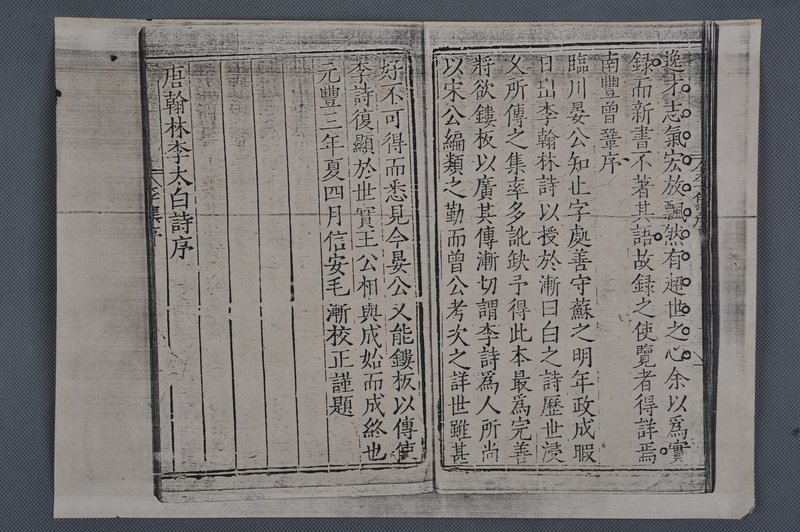 逸才志氣宏放飄然有超世之心余以爲實
録而新書不著其語故録之使覽者得詳焉
南豐曾鞏序
臨川晏公知止字處善守蘇之明年政成暇
日出李翰林詩以授於漸曰白之詩歷世浸
久所傳之集率多訛缺予得此本最爲完善
將欲鏤板以廣其傳漸切謂李詩爲人所尚
以宋公編類之勤而曾公考次之詳世雖甚
好不可得而悉見今晏公又能鏤板以傳使
李詩復顯於世實王公相與成始而成終也
元豐三年夏四月信安毛漸校正謹題
唐翰林李太白詩序